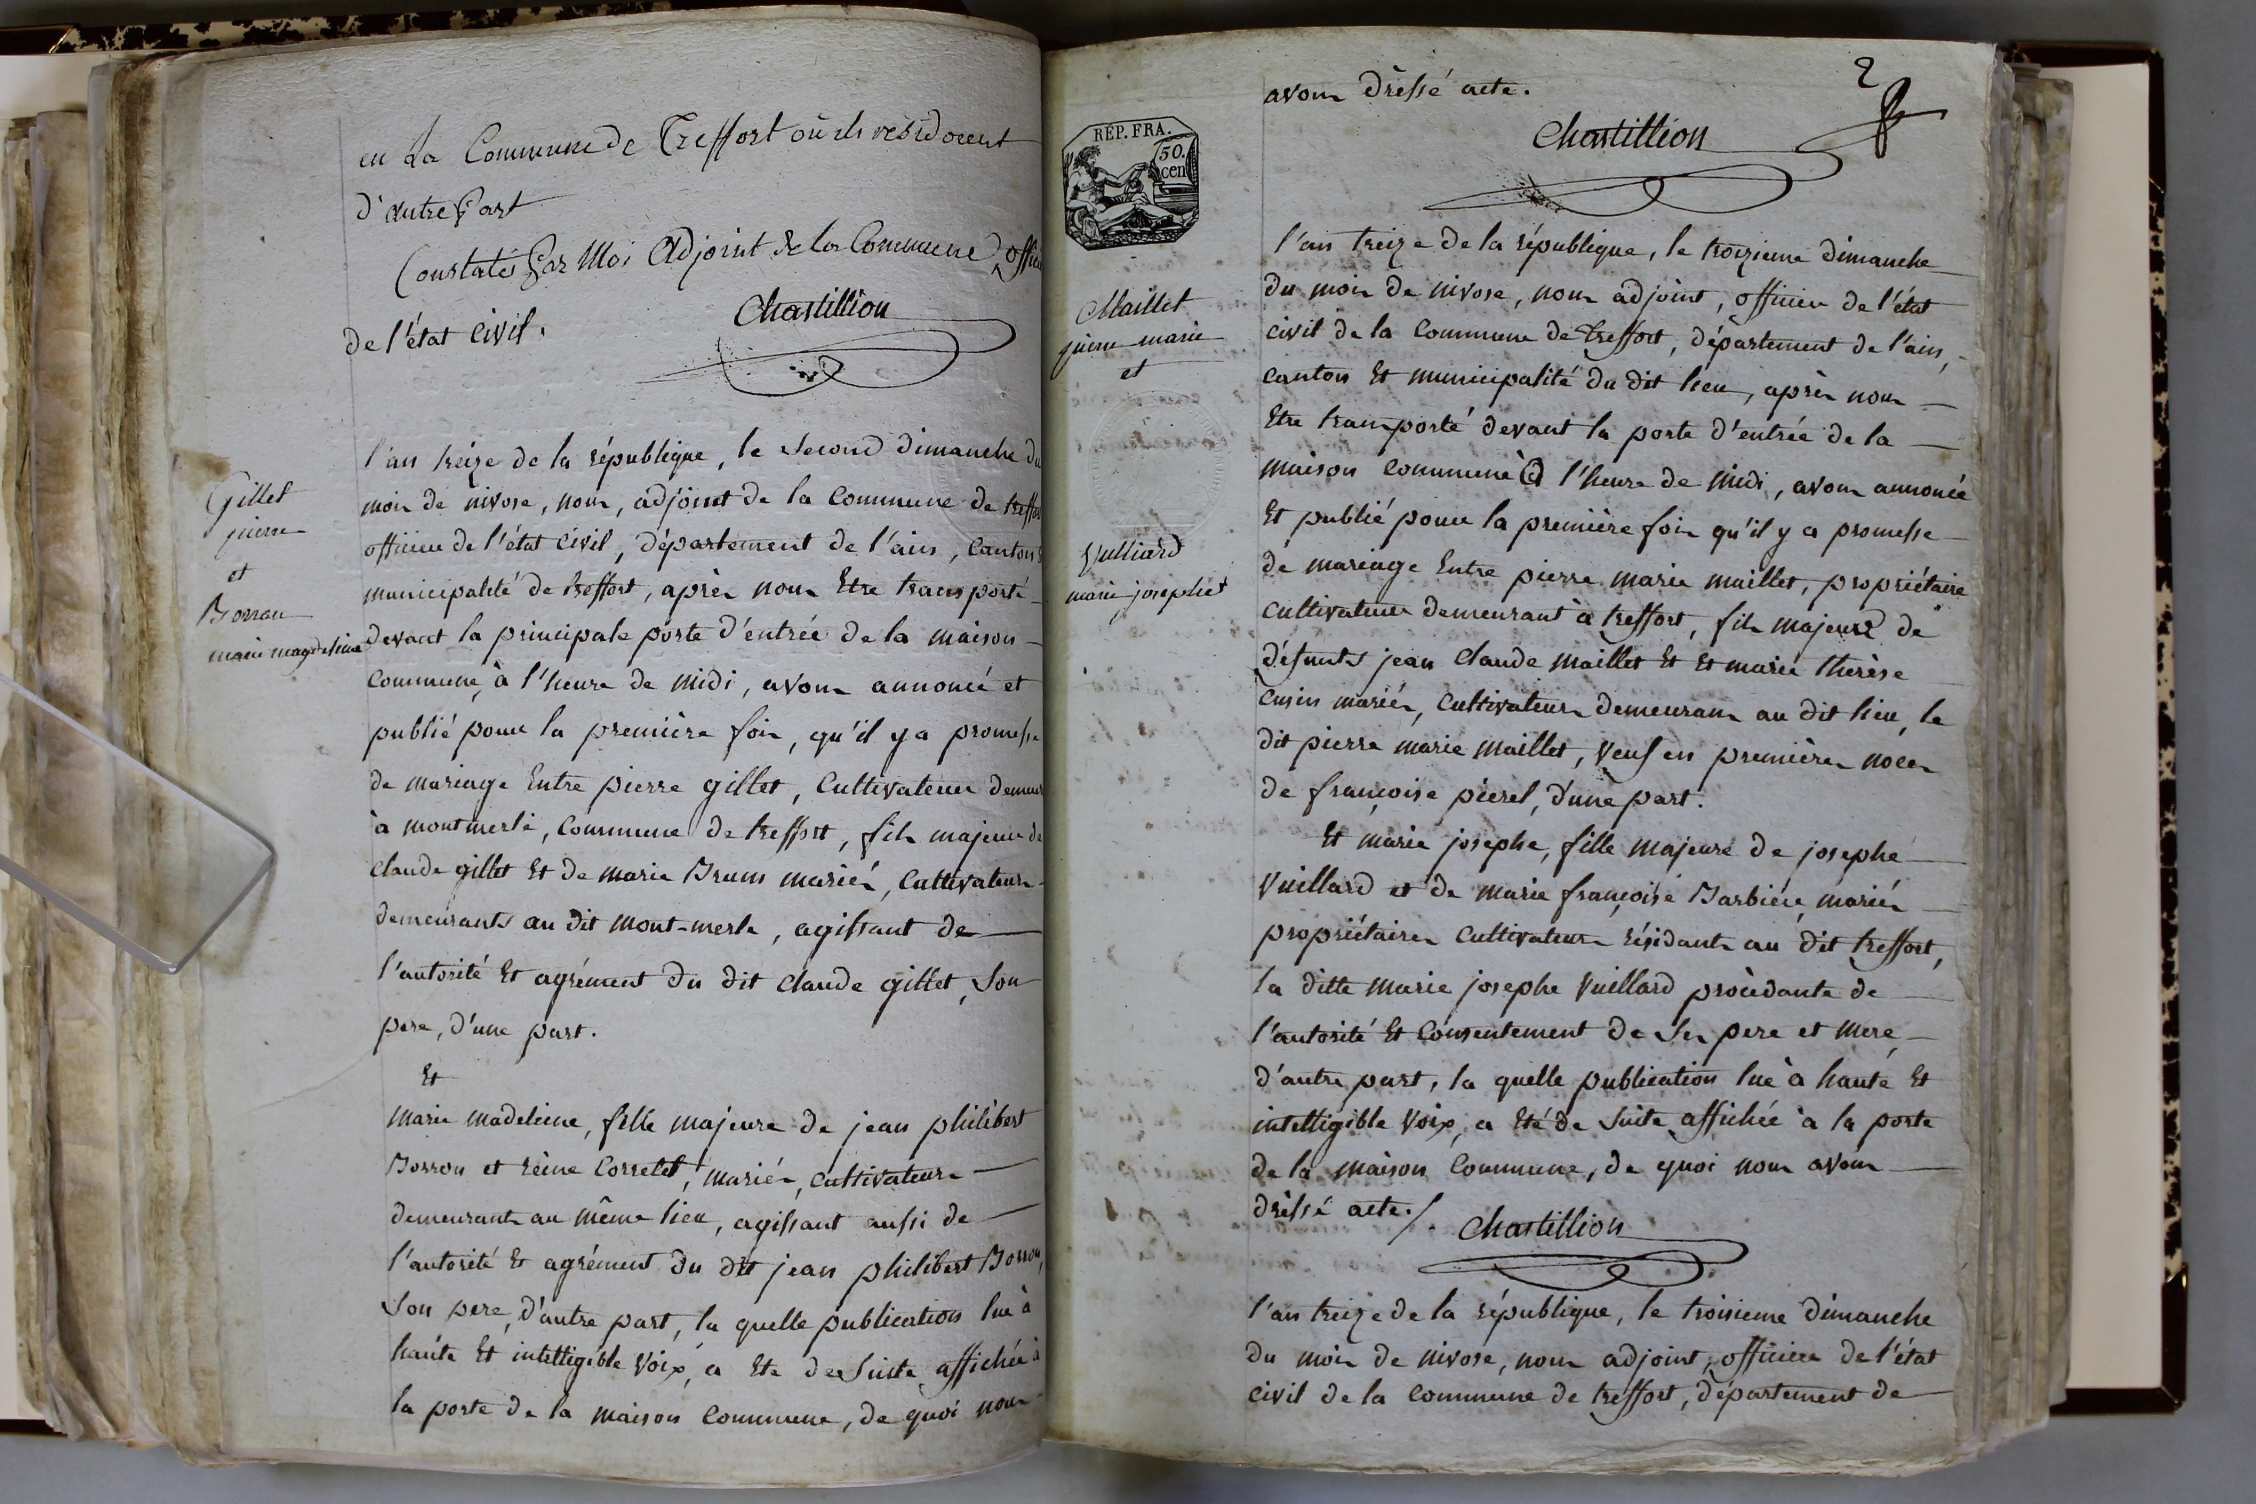 en La Commune de Treffort où ils résidoient
d'autre Part
Constatés Par Moi Adjoint de la Commune, offici
de l'état civil.
Chastillion
Gillet
pierre
et
Borron
marie magdeleine
l'an treize de la république, le second dimanche du
mois de nivose, nous, adjoint de la commune de treffor
officier de l'état civil, département de l'ain, canton &
municipalité de treffort, après nous Etre transporté
devant la principale porte d'entrée de la maison
commune, à l'heure de midi, avons annoncé et
publié pour la première fois, qu'il y a promesse
de mariage Entre pierre gillet, Cultivateur demeur
à montmerle, commune de treffort, fils majeur de
claude gillet Et de marie Brun mariés, Cultivateurs
demeurants au dit mont-merle, agissant de
l'autorité Et agrément du dit claude gillet, son
pere, d'une part.
Et
marie madeleine, fille majeure de jean philibert
Borron et reine Corretel, mariés, cultivateurs
demeurants au même lieu, agissant aussi de
l'autorité Et agrément du dit jean philibert Borron,
son pere, d'autre part, la quelle publication lue à
haute Et intelligible voix, a Eté de suite affichée à
la porte de la maison commune, de quoi nous
2
avons drèssé acte.
Chastillion
RÉP. FRA.
50.
cen
Maillet
pierre marie
et
Vulliard
marie josephe
l'an treize de la république, le troizieme dimanche
du mois de nivose, nous adjoint, officier de l'état
civil de la commune de treffort, département de l'ain,
canton Et municipalité du dit lieu, après nous
Etre transporté devant la porte d'entrée de la
maison commune à l'heure de midi, avons annoncé
Et publié pour la première fois qu'il y a promesse
de mariage Entre pierre marie maillet, propriétaire
cultivateur demeurant à treffort, fils majeur de
défunts jean claude maillet Et Et marie thérèse
cusin mariés, cultivateurs demeurans au dit lieu, le
dit pierre marie maillet, veuf en premières noces
de françoise pierel, d'une part.
Et marie josephe, fille majeure de josephe
Vuillard et de marie françoise Barbier, mariés
propriétaires cultivateurs résidants au dit treffort,
la ditte marie josephe Vuillard procèdante de
l'autorité Et consentement de ses pere et mere
d'autre part, la quelle publication lue à haute Et
intelligible voix, a Eté de suite affichée à la porte
de la maison commune, de quoi nous avons
drèssé acte./.
Chastillion
l'an treize de la république, le troisieme dimanche
du mois de nivose, nous adjoint, officier de l'état
civil de la commune de treffort, département de